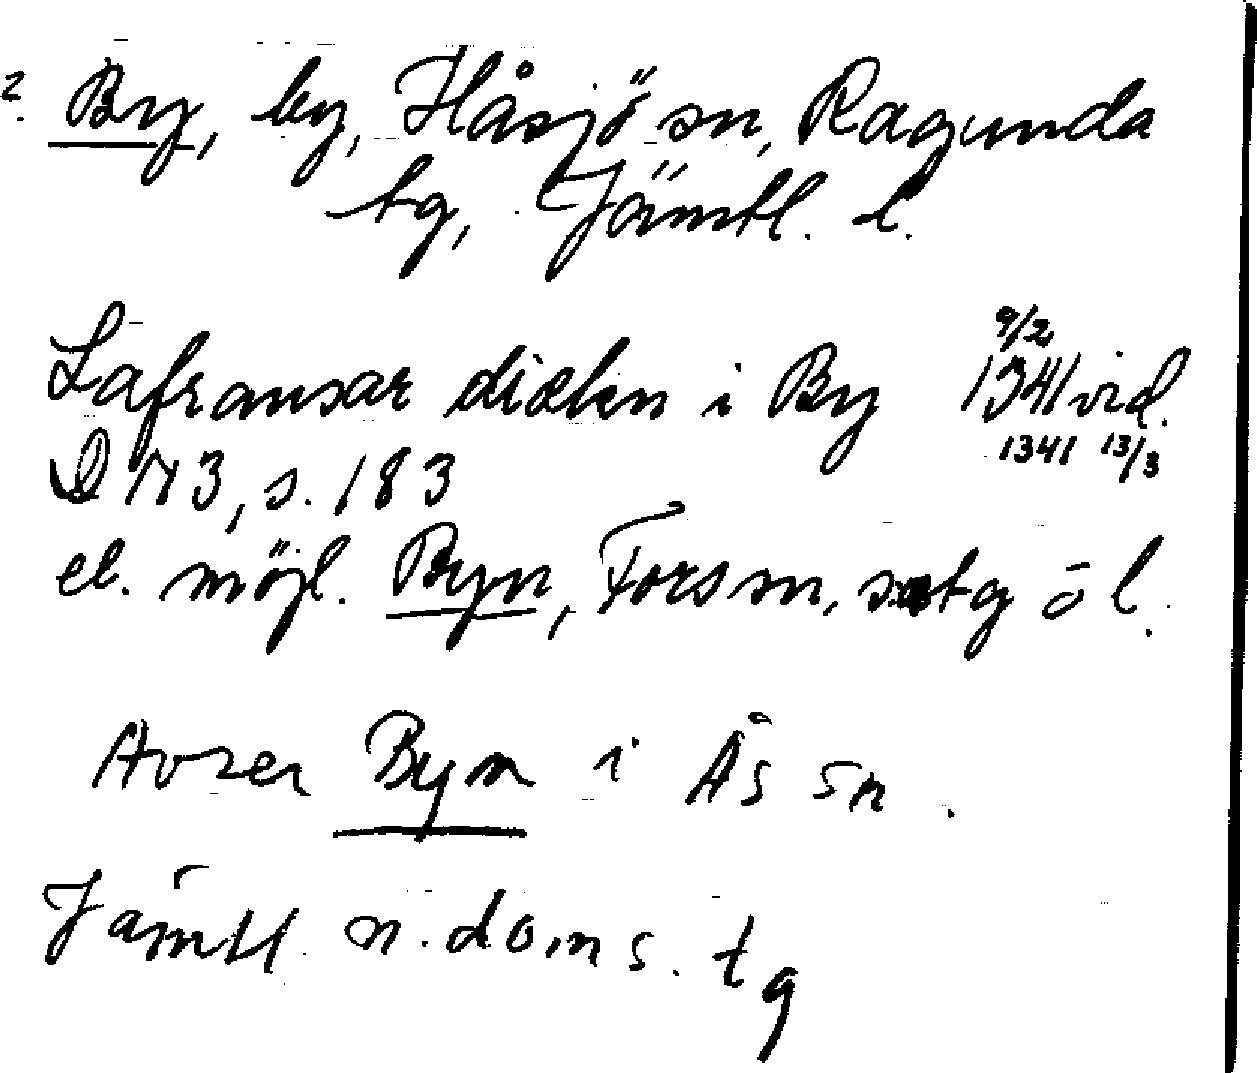 ? By, by, Håsjö sn, Ragunda
tg, Jämtl. l.
9/2
Lafransar diækn i By 1341 vid.
1341 13/3
D 173, s. 183
el. möjl. Byn, Fors sn, s tg o l.
Avser Byn i Ås sn.
Jämtl. n. doms. tg